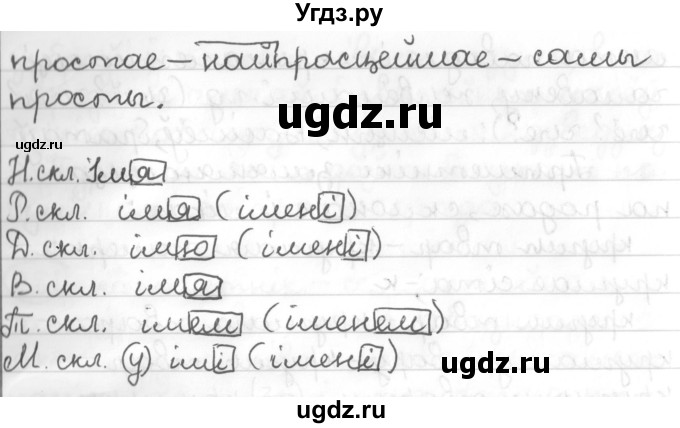 Угдз.ру
простае – найпрасцейшае – самы
просты.
ugdz.ru
ugdz.ru
Н.скл. Імя
Р.скл. імя (імені)
ugdz.ru
Д.скл. імю (імені)
В.скл. імя
Т.скл. імем (іменем)
М.скл. (у) імі (імені)
ugdz.ru
ugdz.ru